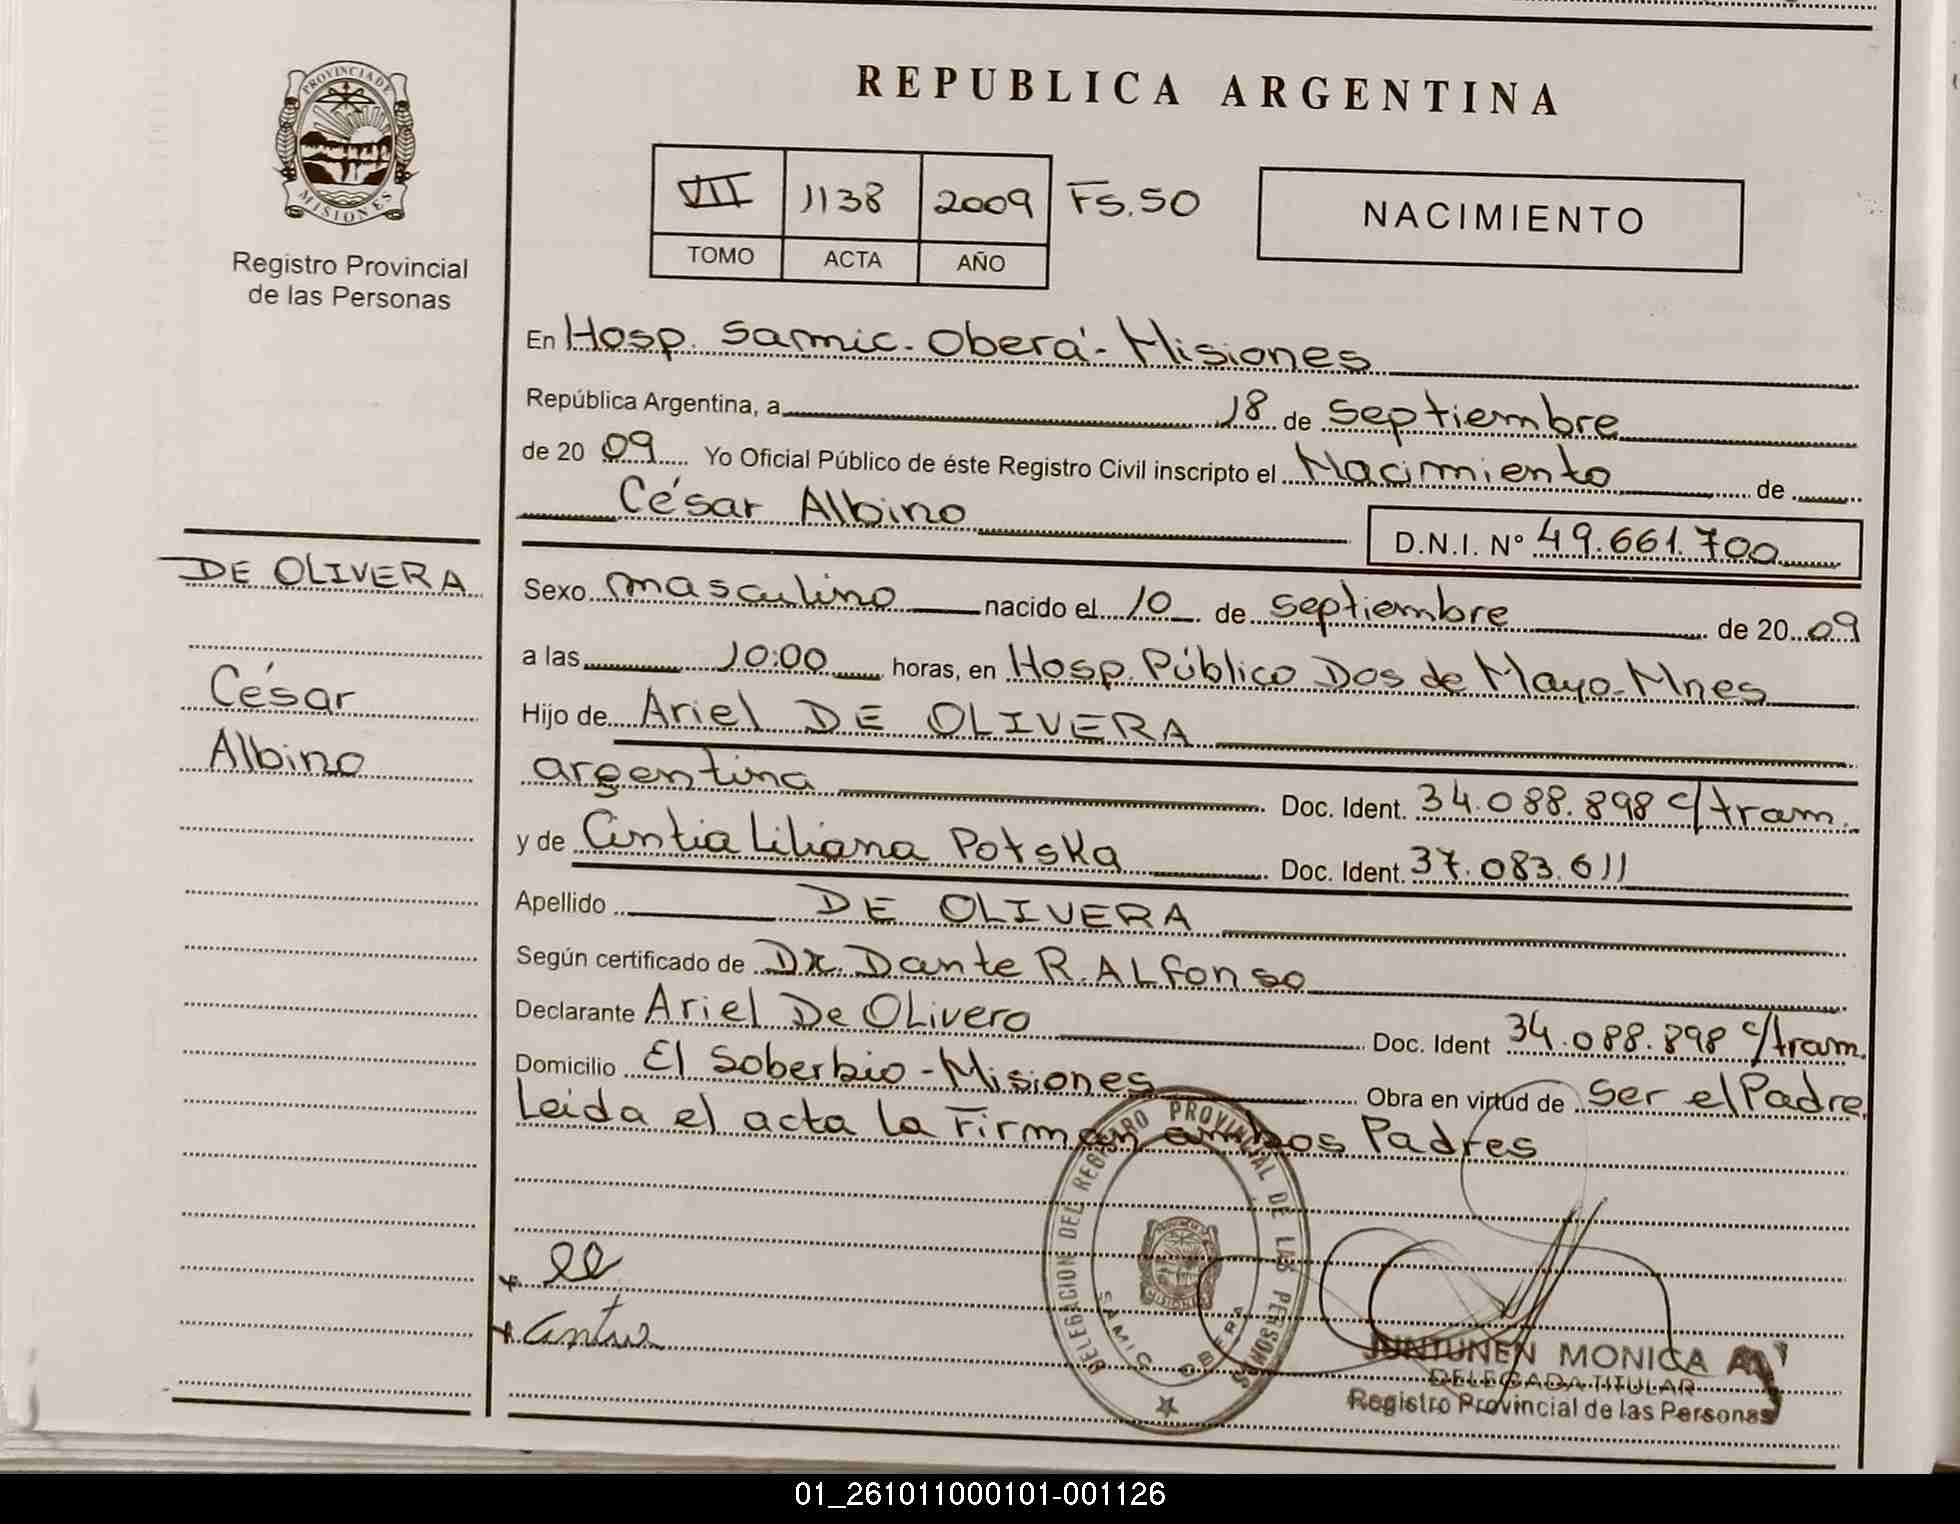 REPUBLICA ARGENTINA
PROVINCIA DE
MISIONES
Registro Provincial
de las Personas
VII 1138 2009 Fs.50
TOMO ACTA AÑO
NACIMIENTO
En Hosp. Samic. Oberá - Misiones
República Argentina, a 18 de septiembre
de 20 09 Yo Oficial Público de éste Registro Civil inscripto el Nacimiento de
César Albino
D.N.I. Nº 49.661.700
DE OLIVERA
César
Albino
Sexo masculino nacido el 10 de septiembre de 20 09
a las 10:00 horas, en Hosp. Público Dos de Mayo-Mnes
Hijo de Ariel DE OLIVERA
argentina Doc. Ident. 34.088.898 c/tram.
y de Cintia Liliana Potska Doc. Ident. 37.083.611
Apellido DE OLIVERA
Según certificado de Dr. Dante R. ALfonso
Declarante Ariel De OLivero Doc. Ident 34.088.898 c/tram.
Domicilio El Soberbio - Misiones Obra en virtud de ser el Padre,
Leida el acta la Firman ambos Padres
DELEGACION DEL REGISTRO PROVINCIAL DE LAS PERSONAS
SAMIC OBERA
JUNTUNEN MONICA
DELEGADA TITULAR
Registro Provincial de las Personas
01_261011000101-001126